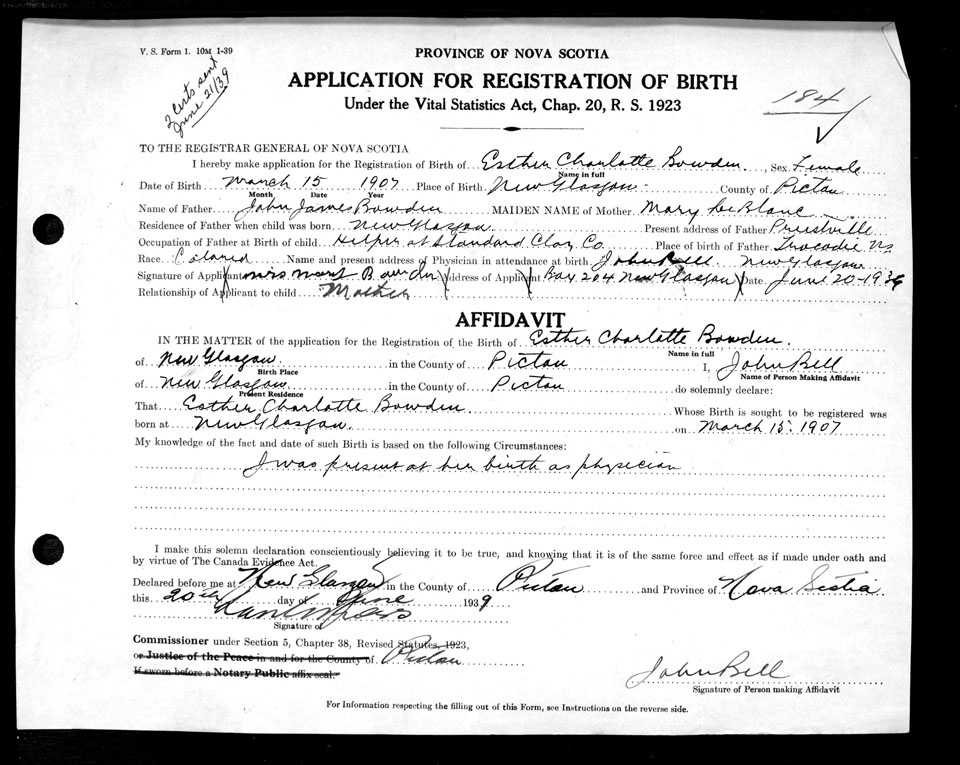 V. S. Form 1. 10M 1-39
2 Certs sent
June 21/39
PROVINCE OF NOVA SCOTIA
APPLICATION FOR REGISTRATION OF BIRTH
Under the Vital Statistics Act, Chap. 20, R. S. 1923
184
TO THE REGISTRAR GENERAL OF NOVA SCOTIA
I hereby make application for the Registration of Birth of Esther Charlotte Bowden, Sex Female
Name in full
Date of Birth March 15 1907 Place of Birth New Glasgow County of Pictou
Month Date Year
Name of Father John James Bowden MAIDEN NAME of Mother Mary LeBlanc
Residence of Father when child was born New Glasgow Present address of Father Priestville
Occupation of Father at Birth of child Helper at Standard Clay Co Place of birth of Father Tracadie Ns
Race Colored Name and present address of Physician in attendance at birth John Bell New Glasgow
Signature of Applicant Mrs Mary Bowden Address of Applicant Box 204 New Glasgow Date June 20-1939
Relationship of Applicant to child Mother
AFFIDAVIT
IN THE MATTER of the application for the Registration of the Birth of Esther Charlotte Bowden.
Name in full
of New Glasgow in the County of Pictou I, John Bell
Birth Place Name of Person Making Affidavit
of New Glasgow in the County of Pictou do solemnly declare:
Present Residence
That Esther Charlotte Bowden Whose Birth is sought to be registered was
born at New Glasgow on March 15. 1907
My knowledge of the fact and date of such Birth is based on the following Circumstances:
I was present at her birth as physician
I make this solemn declaration conscientiously believing it to be true, and knowing that it is of the same force and effect as if made under oath and
by virtue of The Canada Evidence Act.
Declared before me at New Glasgow in the County of Pictou and Province of Nova Scotia
this 20th day of June 1939
Signature of
Commissioner under Section 5, Chapter 38, Revised Statutes, 1923,
or Justice of the Peace in and for the County of Pictou
If sworn before a Notary Public affix seal.
John Bell
Signature of Person making Affidavit
For Information respecting the filling out of this Form, see Instructions on the reverse side.